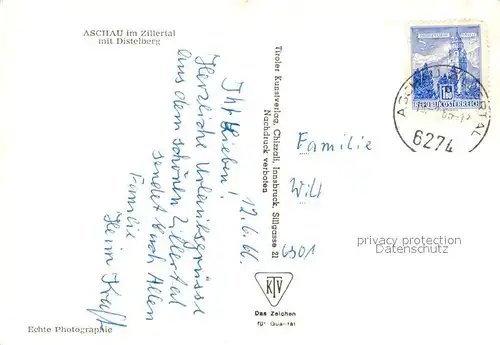 ASCHAU im Zillertal
mit Distelberg
Ihr Lieben! 12.6.66.
Herzliche Urlaubsgrüsse
aus dem schönen Zillertal
sendet Euch Allen
Familie
Heim Kraft
Echte Photographie
Tiroler Kunstverlag, Chizzali, Innsbruck, Sillgasse 21
Nachdruck verboten
KTV
Das Zeichen
für Qualität
REPUBLIK ÖSTERREICH
6274
Familie
Wilt
6901
privacy protection
Datenschutz